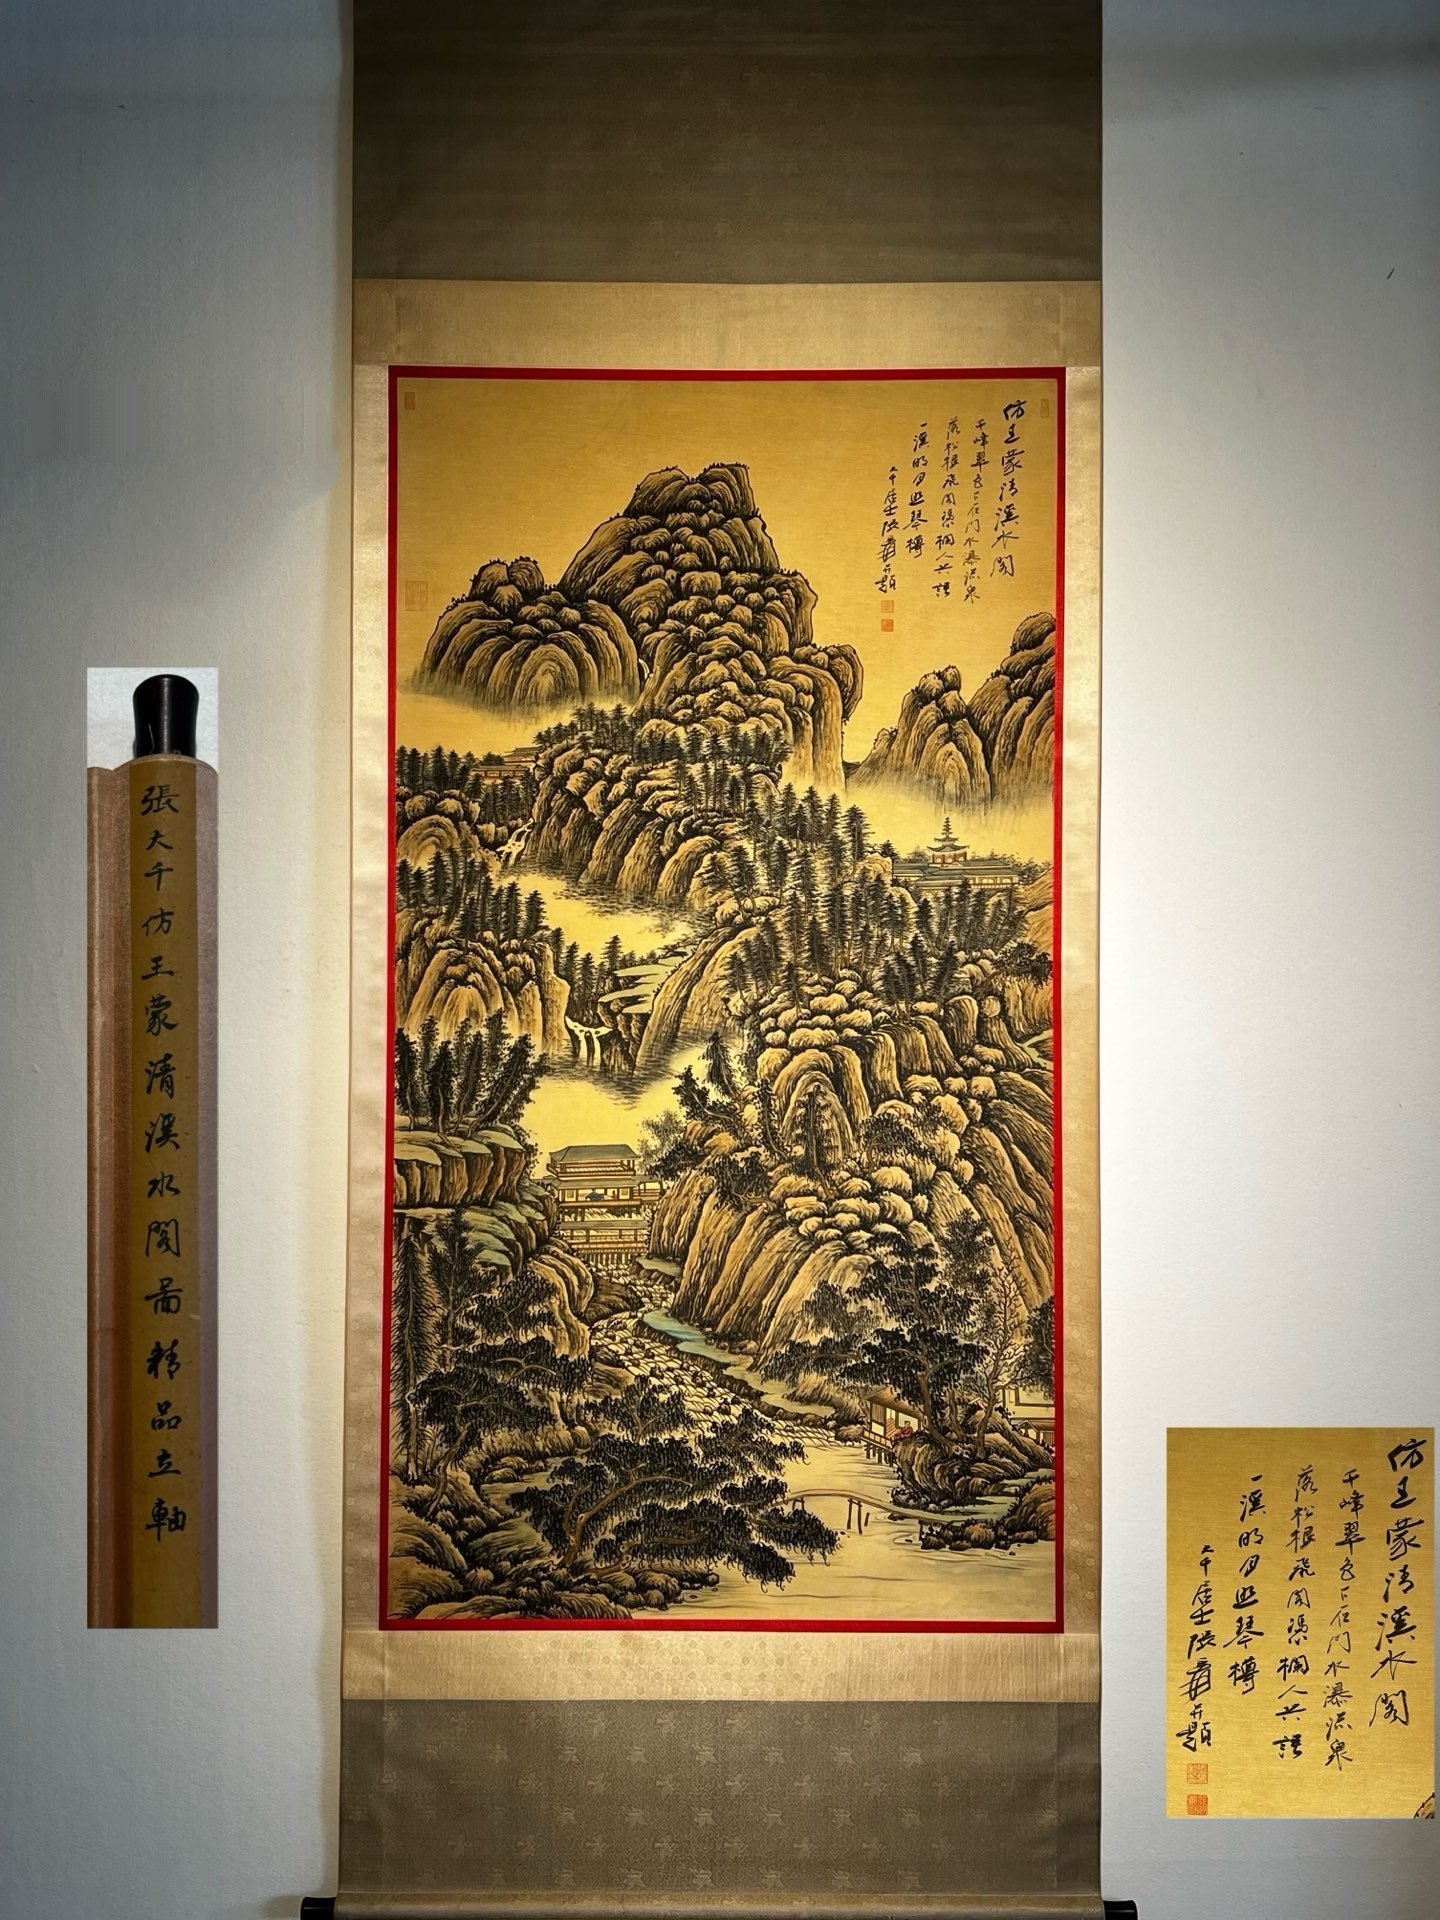 仿王蒙清溪水閣
千峰翠色下石門水瀑流泉
落松根飛閣憑欄人共語
一溪明月照琴樽
大千居士張爰并題
張大千仿王蒙清溪水閣圖精品立軸
仿王蒙清溪水閣
千峰翠色下石門水瀑流泉
落松根飛閣憑欄人共語
一溪明月照琴樽
大千居士張爰并題